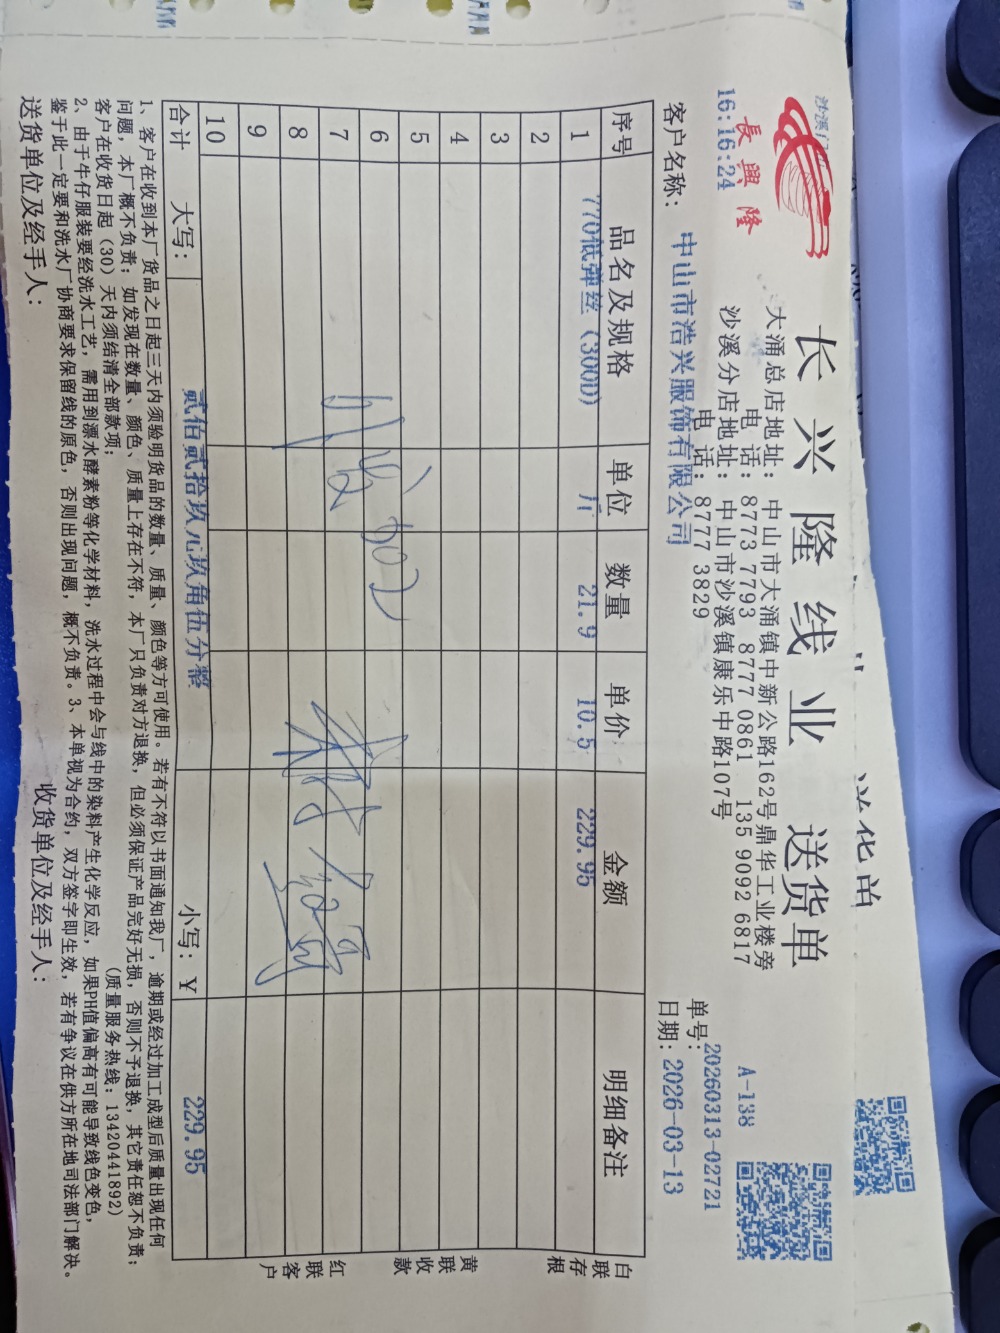 長興隆
长兴隆线业 送货单
16:16:24
A-138
大涌总店地址: 中山市大涌镇中新公路162号鼎华工业楼旁
电 话: 8773 7793 8777 0861 135 9092 6817
沙溪分店地址: 中山市沙溪镇康乐中路107号
电 话: 8777 3829
单号: 20260313-02721
客户名称: 中山市浩兴服饰有限公司
日期: 2026-03-13
序号 品名及规格 单位 数量 单价 金额 明细备注
1 770低弹丝(300D) 斤 21.9 10.5 229.95
2
3
4
5
6
7
8
9
10
合计 大写: 贰佰贰拾玖元玖角伍分整 小写: ¥ 229.95
白联存根
黄联收款
红联客户
1、客户在收到本厂货品之日起三天内须验明货品的数量、质量、颜色等方可使用。若有不符以书面通知我厂,逾期或经过加工成型后质量出现任何
问题,本厂概不负责;如发现在数量、颜色、质量上存在不符,本厂只负责对方退换,但必须保证产品完好无损,否则不予退换,其它责任恕不负责;
客户在收货日起(30)天内须结清全部款项; (质量服务热线:13420441892)
2、由于牛仔服装要经洗水工艺,需用到漂水酵素粉等化学材料,洗水过程中会与线中的染料产生化学反应,如果PH值偏高有可能导致线色变色,
鉴于此一定要和洗水厂协商要求保留线的原色,否则出现问题,概不负责。3、本单视为合约,双方签字即生效,若有争议在供方所在地司法部门解决。
送货单位及经手人: 收货单位及经手人: